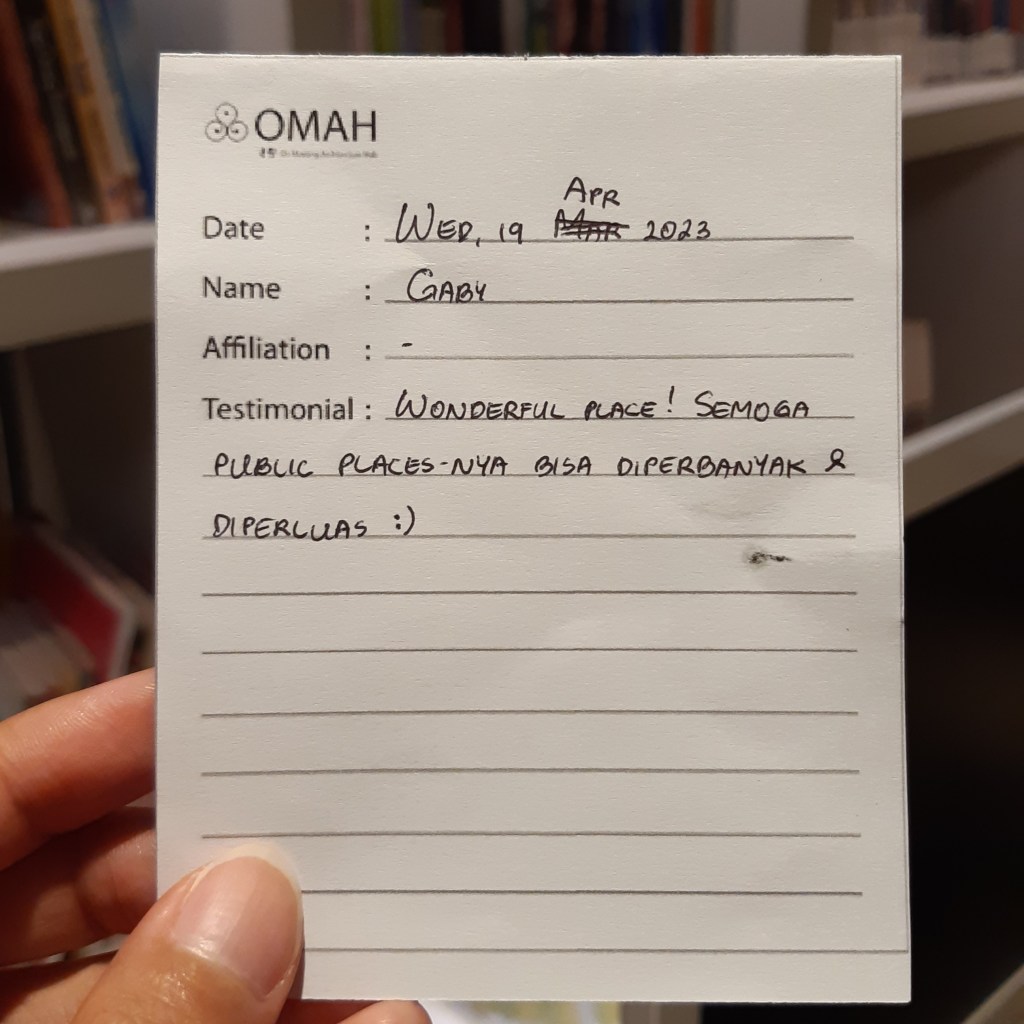 OMAH
APR
Date : WED, 19 MAR 2023
Name : GABY
Affiliation : -
Testimonial : WONDERFUL PLACE! SEMOGA
PUBLIC PLACES-NYA BISA DIPERBANYAK &
DIPERLUAS :)